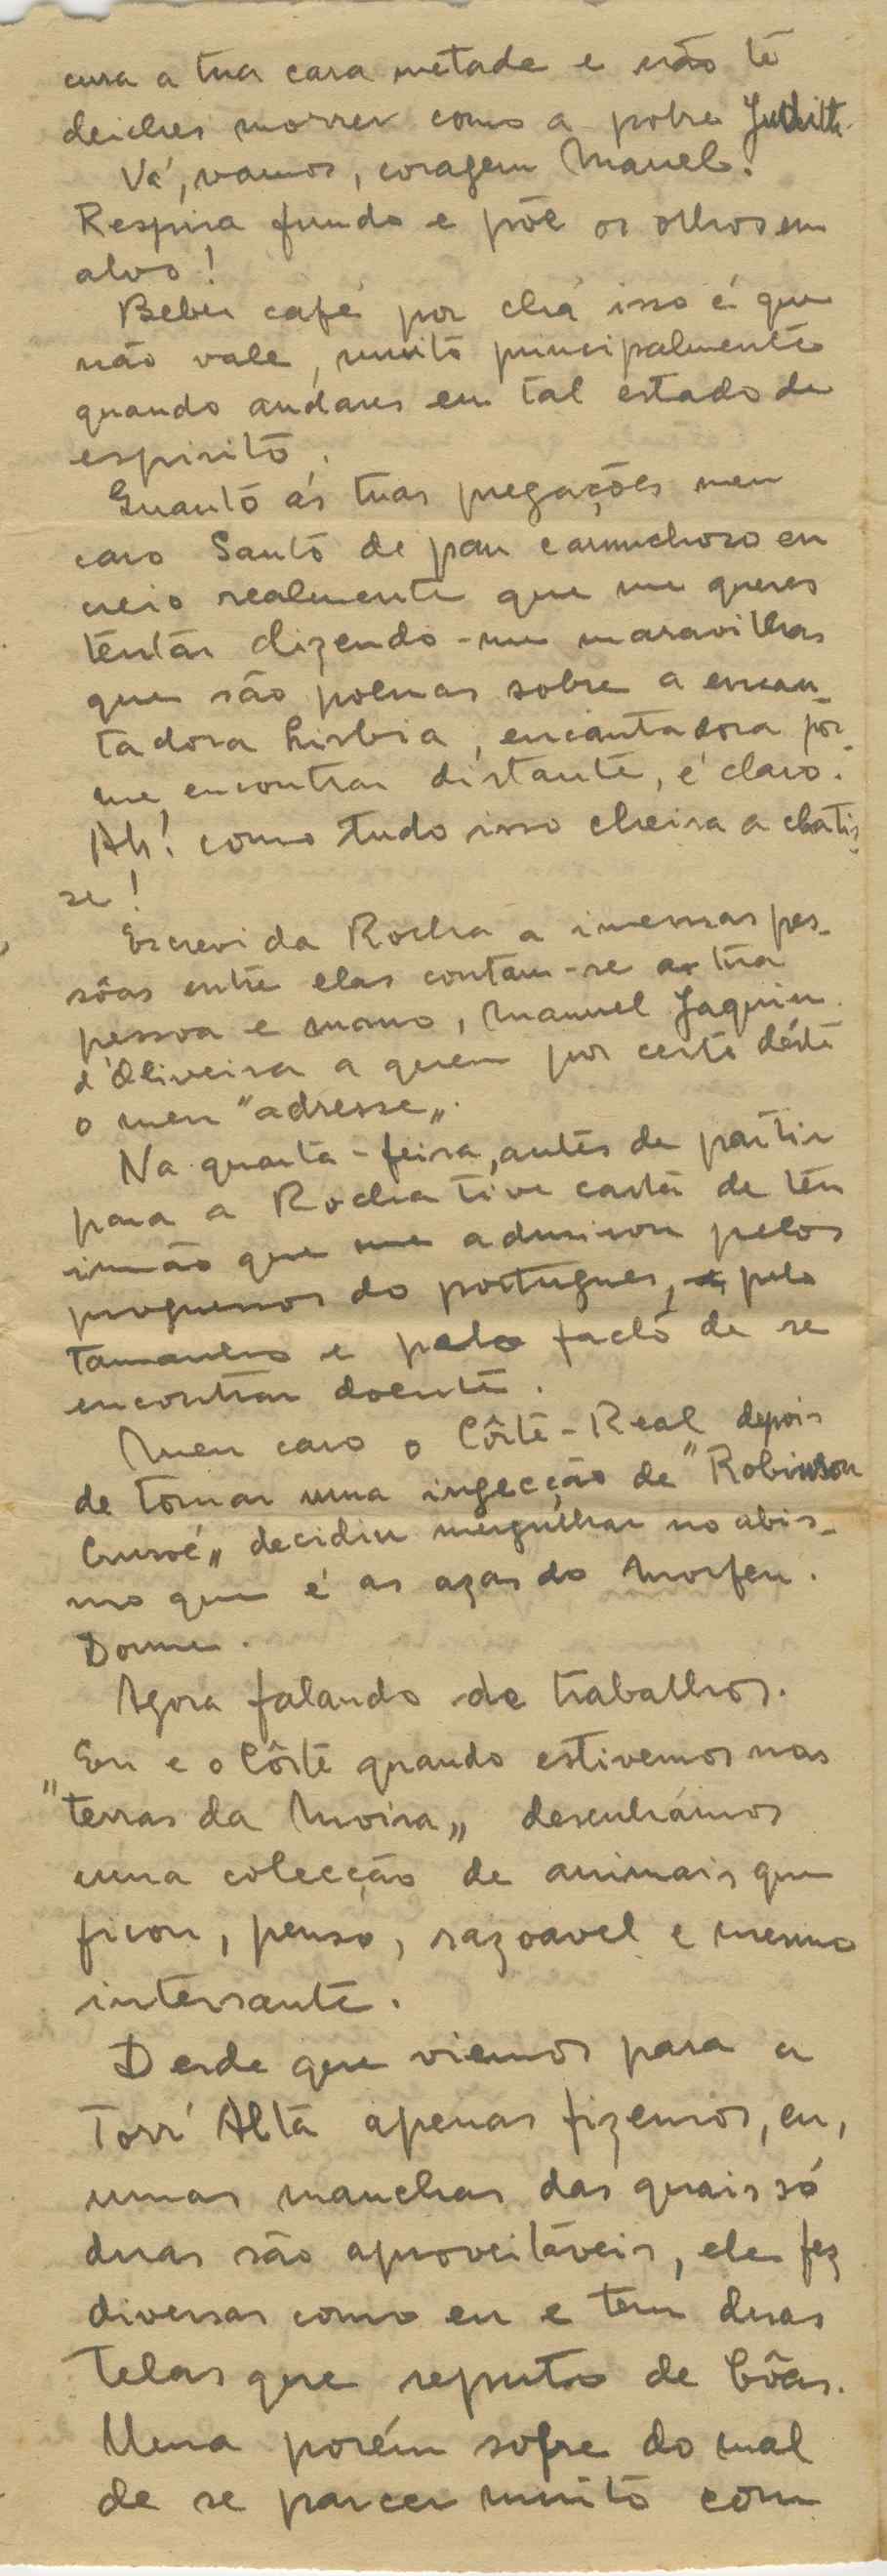 cura a tua cara metade e não te
deiches morrer como a pobre Judith.
Vá, vamos, coragem Manel!
Respira fundo e põe os olhos em
alvo!
Beber café por chá isso é que
não vale, muito principalmente
quando andares em tal estado de
espirito.
Quanto ás tuas pregações meu
caro Santo de pau carunchoso eu
creio realmente que me queres
tentar dizendo-me maravilhas
que são poemas sobre a encan-
tadora lisbia, encantadora por
me encontrar distante, é claro.
Ah! como tudo isso cheira a chati-
se!
Escrevi da Rocha a imensas pes-
sôas entre elas contam-se a tua
pessoa e mano, Manuel Jaquim
d'Oliveira a quem por certo déste
o meu "adresse„.
Na quarta-feira, antes de partir
para a Rocha tive carta de teu
irmão que me admirou pelos
progressos do portugues, pelo
tamanho e pelo facto de se
encontrar doente.
Meu caro o Côrte-Real depois
de tomar uma ingecção de "Robinson
Crusoé„ decidiu mergulhar no abis-
mo que é as azas do Morfeu.
Dorme.
Agora falando de trabalhos.
Eu e o Côrte quando estivemos nas
"terras da Moira„ desenhámos
uma colecção de animais que
ficou, penso, razoavel e mesmo
intersante.
Desde que viemos para a
Torr'Alta apenas fizemos, eu,
umas manchas das quais só
duas são aproveitáveis, ele fez
diversas como eu e tem duas
telas que reputo de bôas.
Uma porém sofre do mal
de se parcer muito com